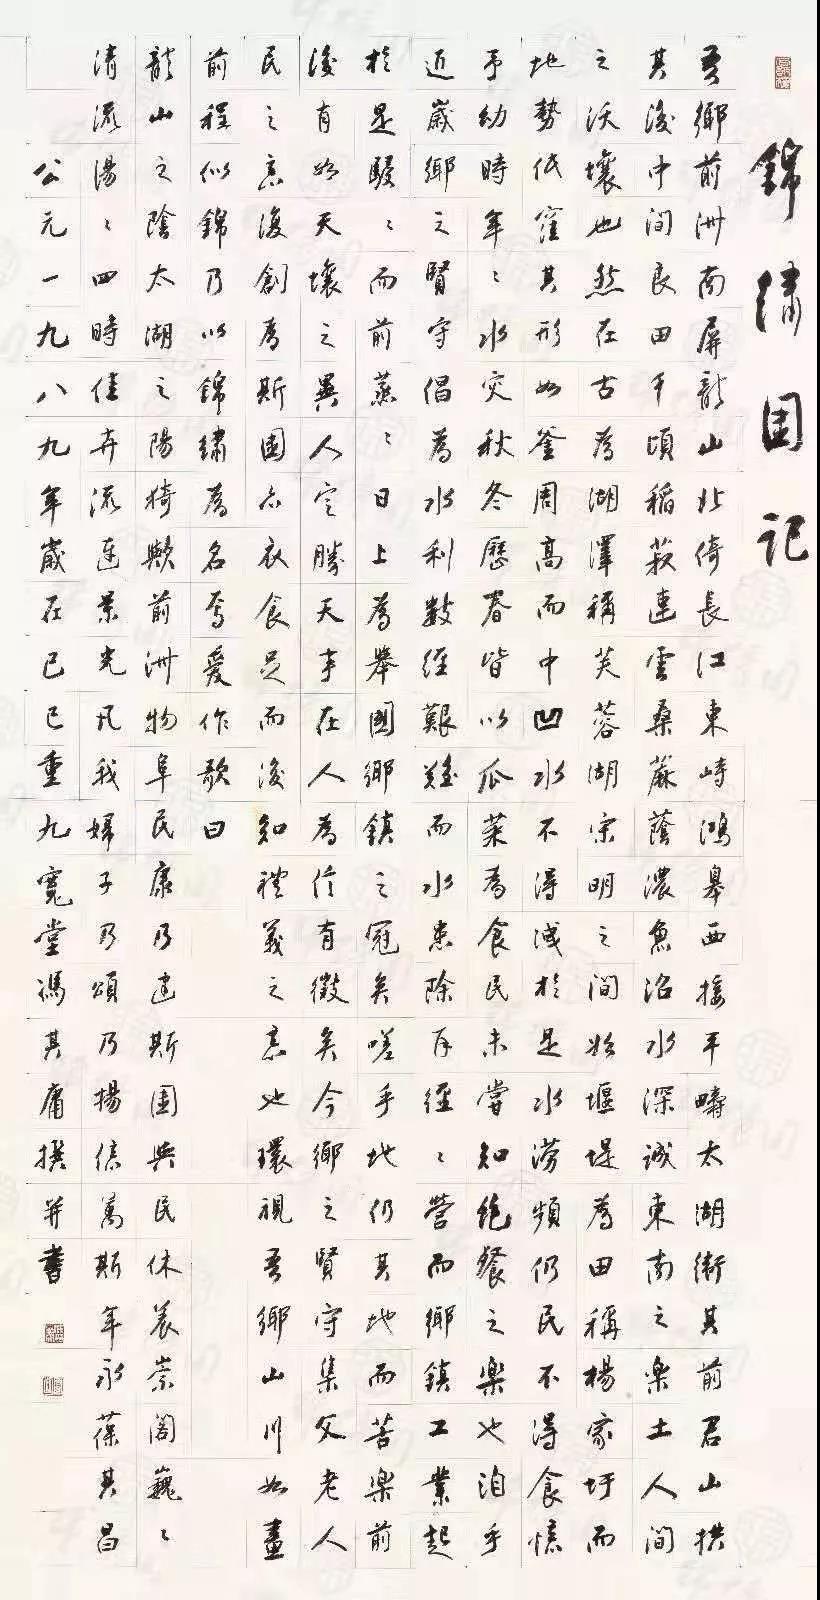 錦绣園记
吾鄉前洲南屏龍山北倚長江東峙鴻皋西接平疇太湖衛其前君山拱
其後中间良田千頃稻菽連雲桑蔴蔭濃魚沼水深誠東南之樂土人间
之沃壤也然在古為湖澤稱芙蓉湖宋明之间始堰堤為田稱楊家圩而
地勢低窪其形如釜周高而中凹水不得洩於是水澇頻仍民不得食憶
予幼時年〻水灾秋冬歷春皆以瓜菜為食民未嘗知飽餐之樂也洎乎
近歲鄉之賢守倡為水利數經艱難而水患除再經〻營而鄉鎮工業起
於是駸〻而前蒸〻日上為舉國鄉鎮之冠矣嗟乎地仍其地而苦樂前
後有如天壤之異人定勝天事在人為信有徵矣今鄉之賢守集父老人
民之意復創為斯園亦衣食足而後知禮義之意也環視吾鄉山川如畫
前程似錦乃以錦繡為名焉爰作歌曰
龍山之陰太湖之陽猗歟前洲物阜民康乃建斯園與民休養崇閣巍〻
清流湯〻四時佳卉流連景光凡我婦子乃頌乃揚億萬斯年永葆其昌
公元一九八九年歲在己巳重九寬堂馮其庸撰并書